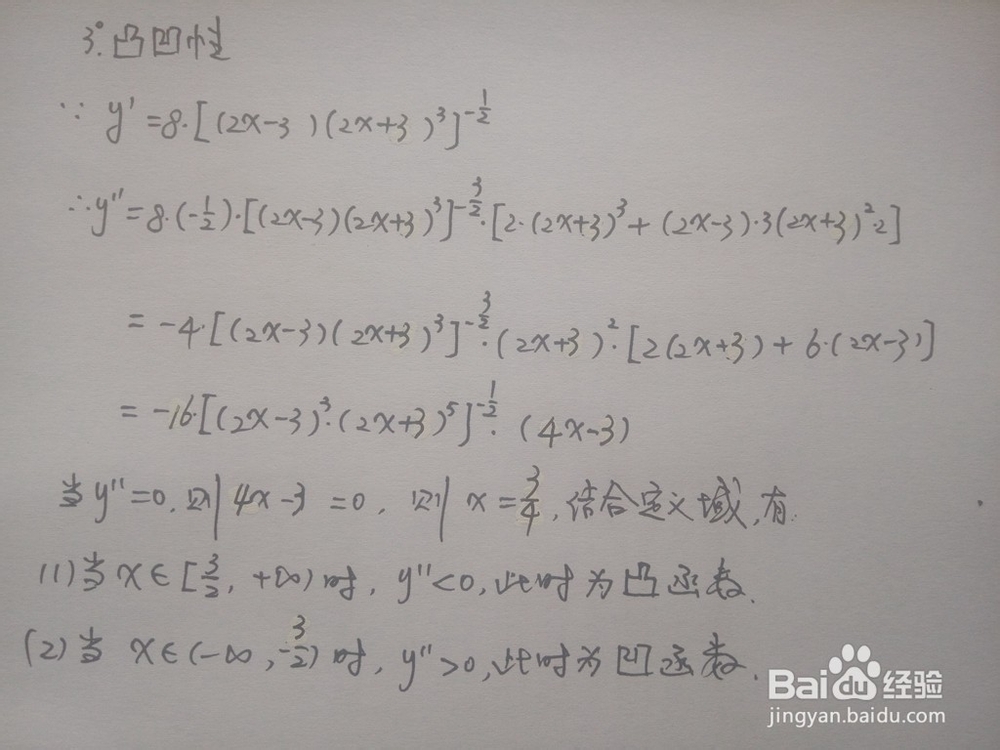 3°.凸凹性
∵ y'=8·[(2x-3)(2x+3)³]^{-1/2}
∴y''=8·(-1/2)·[(2x-3)(2x+3)³]^{-3/2}·[2·(2x+3)³+(2x-3)·3(2x+3)²·2]
=-4·[(2x-3)(2x+3)³]^{-3/2}·(2x+3)²·[2(2x+3)+6·(2x-3)]
=-16·[(2x-3)³·(2x+3)⁵]^{-1/2}·(4x-3)
当y''=0,则4x-3=0,则x=3/4,结合定义域,有.
(1)当x∈[3/2,+∞)时,y''<0,此时为凸函数.
(2)当x∈(-∞,-3/2)时,y''>0,此时为凹函数.
Baidu经验
jingyan.baidu.com